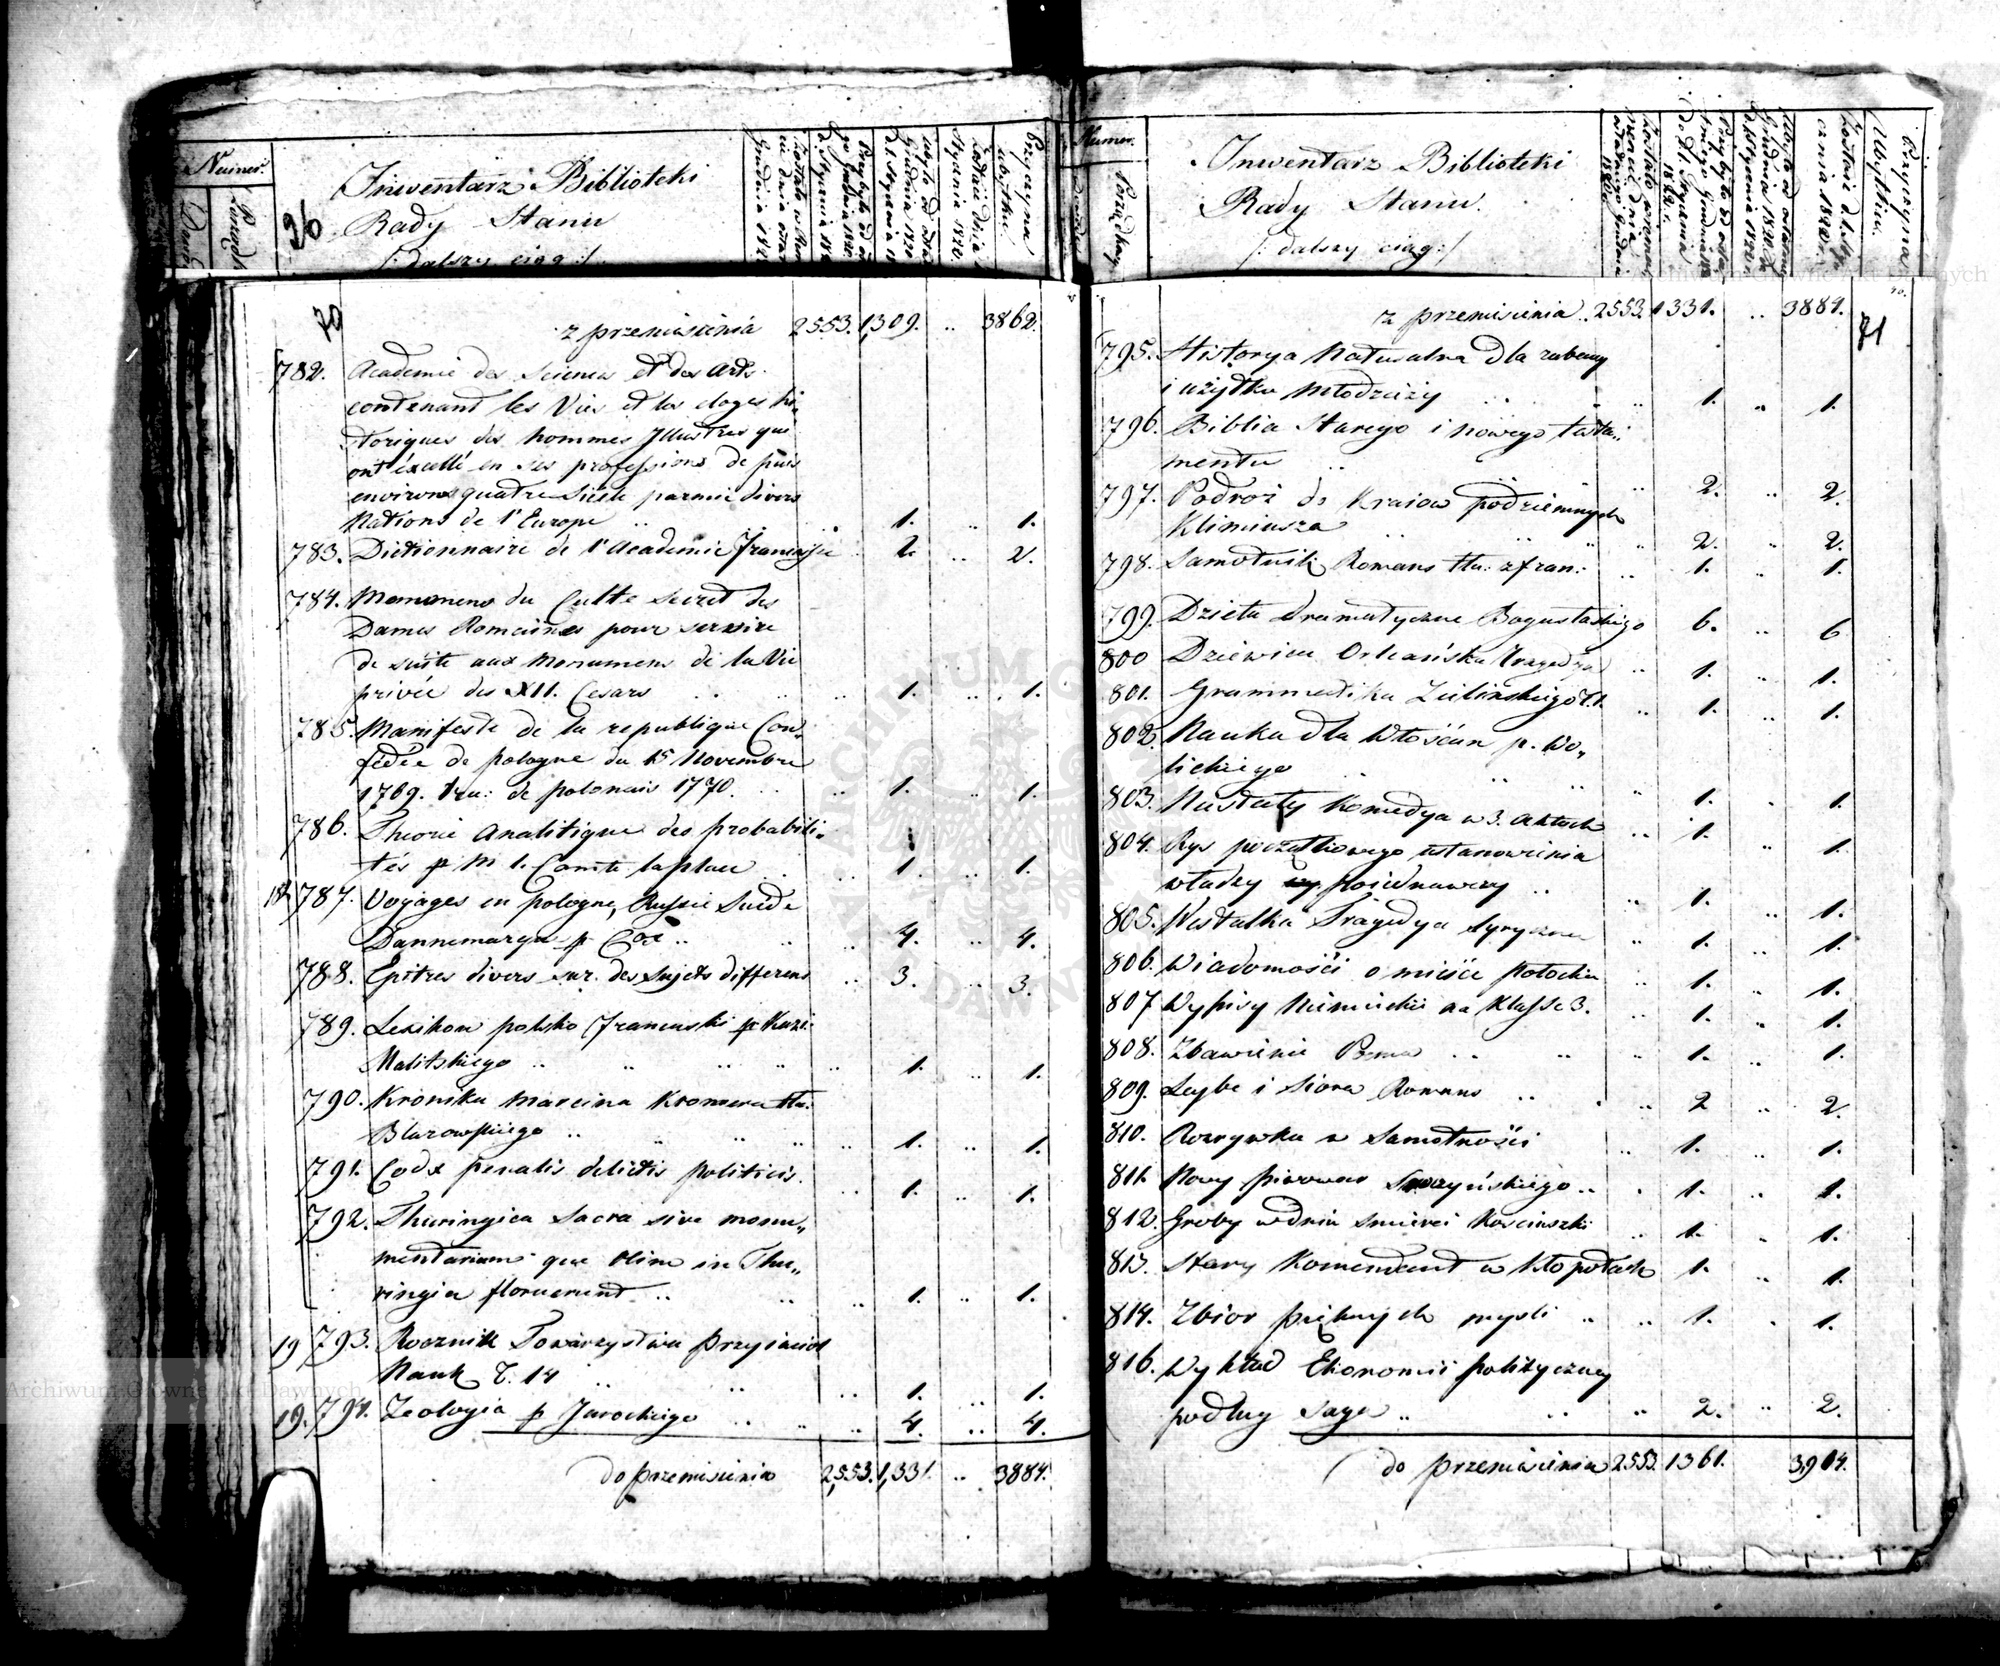 Numer.
26
Inwentarz Biblioteki
Rady Stanu
/: dalszy ciąg :/
Przyczyna
ubytku
70
z przeniesienia 2553. 1,309. .. 3862.
782. Academie des Sciences et des Arts
contenant les Vies et les eloges hi-
storiques des hommes Illustres qui
ont éxcellé en ses professions de puis
environs quatre Siécle parmie divers
Nations de l'Europe .. 1. .. 1.
783. Dictionnaire de l'Academie française 2. .. 2.
784. Monumens du Culte Secret des
Dames Romaines pour servire
de suite aux Monumens de la Vie
privée des XII. Cesars .. 1. .. 1.
785. Manifeste de la republique Con-
fédée de pologne du 15 Novembre
1769. tra: de polonais 1770. .. 1. .. 1.
786. Theorie Analitique des probabili-
tés p M l. Comte laplace .. 1. .. 1.
787. Voyages en pologne, Russie Suede
Dannemarque p Cox .. 4. .. 4.
788. Epitres divers sur des sujets differens .. 3. 3.
789. Lexikon polsko francuski p Kazi:
Malitskiego .. 1. .. 1.
790. Kronika Marcina Kromera tłu:
Błazowskiego .. 1. .. 1.
791. Codex penalis delictis politicis. .. 1. .. 1.
792. Thuringica Sacra sive monu„
mentarium que olim in Thu„
ringia floruerunt .. 1. .. 1.
19 793. Rocznik Towarzystwa przyiaciol
Nauk T. 14 .. 1. .. 1.
19. 794. Zoologia p Jarockiego .. 4. .. 4.
do przeniesienia 2,553. 1,331. .. 3884.
Numer.
Porządkowy
Inwentarz Biblioteki
Rady Stanu.
/: dalszy ciąg :/
Przyczyna
Ubytku.
71
z przeniesienia .. 2553. 1331. .. 3884.
795. Historya Naturalna dla zabawy
i użytku Młodzieży .. 1. .. 1.
796. Biblia Starego i nowego testa„
mentu .. 2. .. 2.
797. Podroż do Kraiow podziemnych
Klimiusza .. 2. .. 2.
798. Samotnik Romans tłu: z fran: .. 1. 1.
799. Dzieła dramatyczne Bogusławskiego 6. .. 6
800 Dziewica Orleańska Tragedya .. 1. .. 1.
801. Grammatika Zielinskiego T.1. .. 1. .. 1.
802. Nauka dla Włościan p. Wo„
lickiego .. 1. . 1.
803. Komedya w 3. Aktach .. 1. .. 1.
804. Rys początkowego ustanowienia
władzy poiednawczy .. 1. .. 1.
805. Westalka Tragedya lyryczna .. 1. .. 1.
806. Wiadomośći o mieśće Połocku .. 1. .. 1.
807 Wypisy Niemieckie na Klasse 3. .. 1. .. 1.
808. Zbawienie Poema .. 1. .. 1.
809. Leybe i Siora Romans .. 2 .. 2.
810. Rozrywka w Samotnośći .. 1. .. 1.
811. Nowy pierwszy .. 1. .. 1.
812. Groby w dniu smierci Kosciuszki .. 1. . 1.
813. Stary Komendant w Kłopotach 1. .. 1.
814. Zbior pięknych mysli .. 1. . 1.
816. Wykład Ekonomii politycznej
podług Saya .. 2. .. 2.
do przeniesienia 2553. 1361. 3,914.